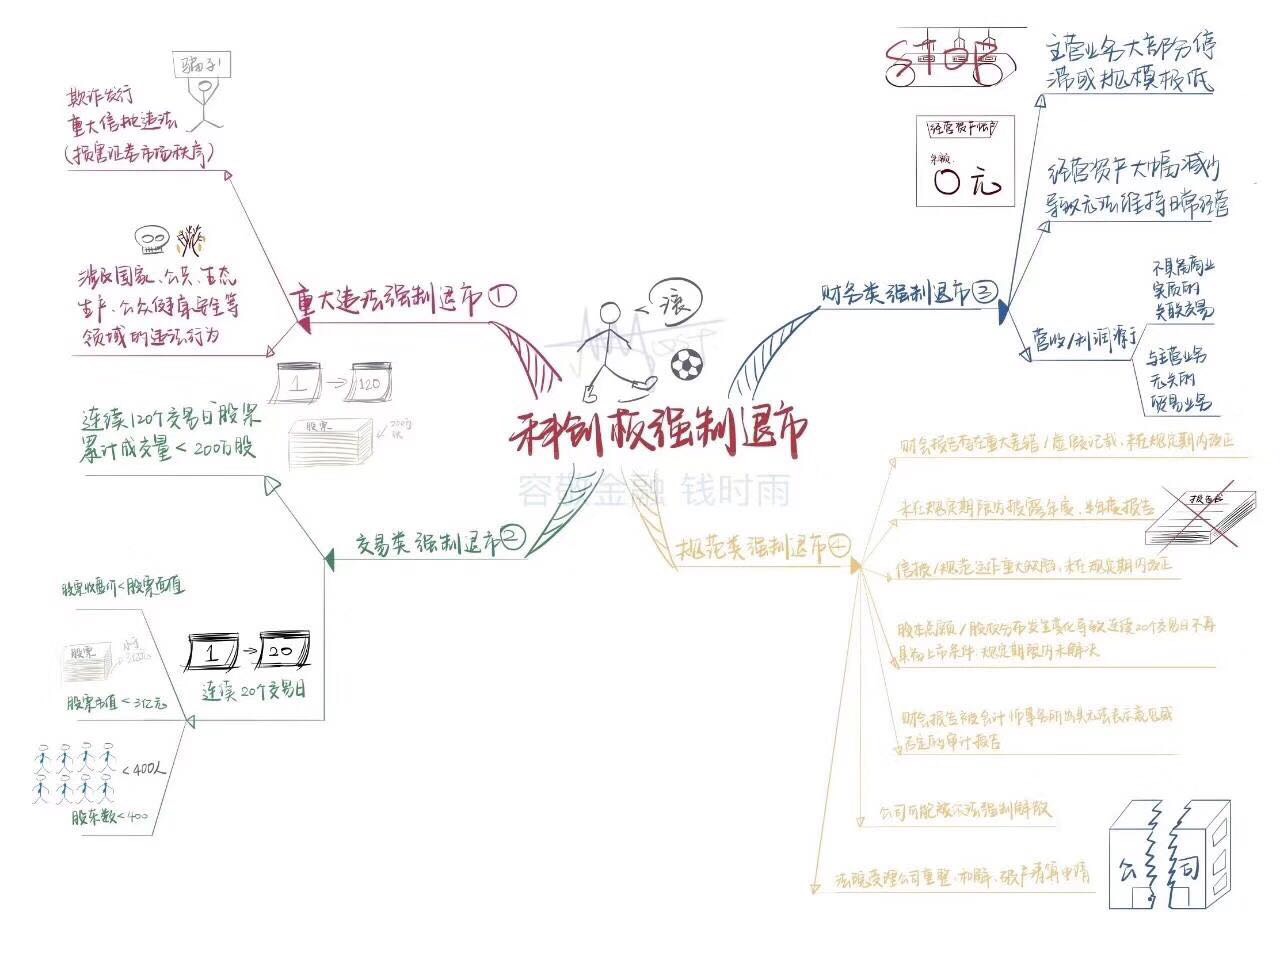 科创板强制退市
滚
容敬金融 钱时雨
重大违法强制退市①
骗子!
欺诈发行
重大信披违法
(损害证券市场秩序)
涉及国家、公共、生态
生产、公众健康安全等
领域的违法行为
交易类强制退市②
1 → 120
股票
200万
连续120个交易日股票
累计成交量<200万股
1 → 20
连续20个交易日
股票收盘价<股票面值
股票
小于
3亿元
股票市值<3亿元
<400人
股东数<400
财务类强制退市③
STOP
主营业务大部分停
滞或规模极低
经营资产账户
余额:
0元
经营资产大幅减少
导致无法维持日常经营
营收/利润源于
不具备商业
实质的
关联交易
与主营业务
无关的
贸易业务
规范类强制退市④
财会报告存在重大差错/虚假记载,未在规定期内改正
未在规定期限内披露年度、半年度报告
报告
信披/规范运作重大缺陷,未在规定期内改正
股本总额/股权分布发生变化导致连续20个交易日不再
具备上市条件,规定期限内未解决
财会报告被会计师事务所出具无法表示意见或
否定的审计报告
公司可能被依法强制解散
法院受理公司重整、和解、破产清算申请
公司